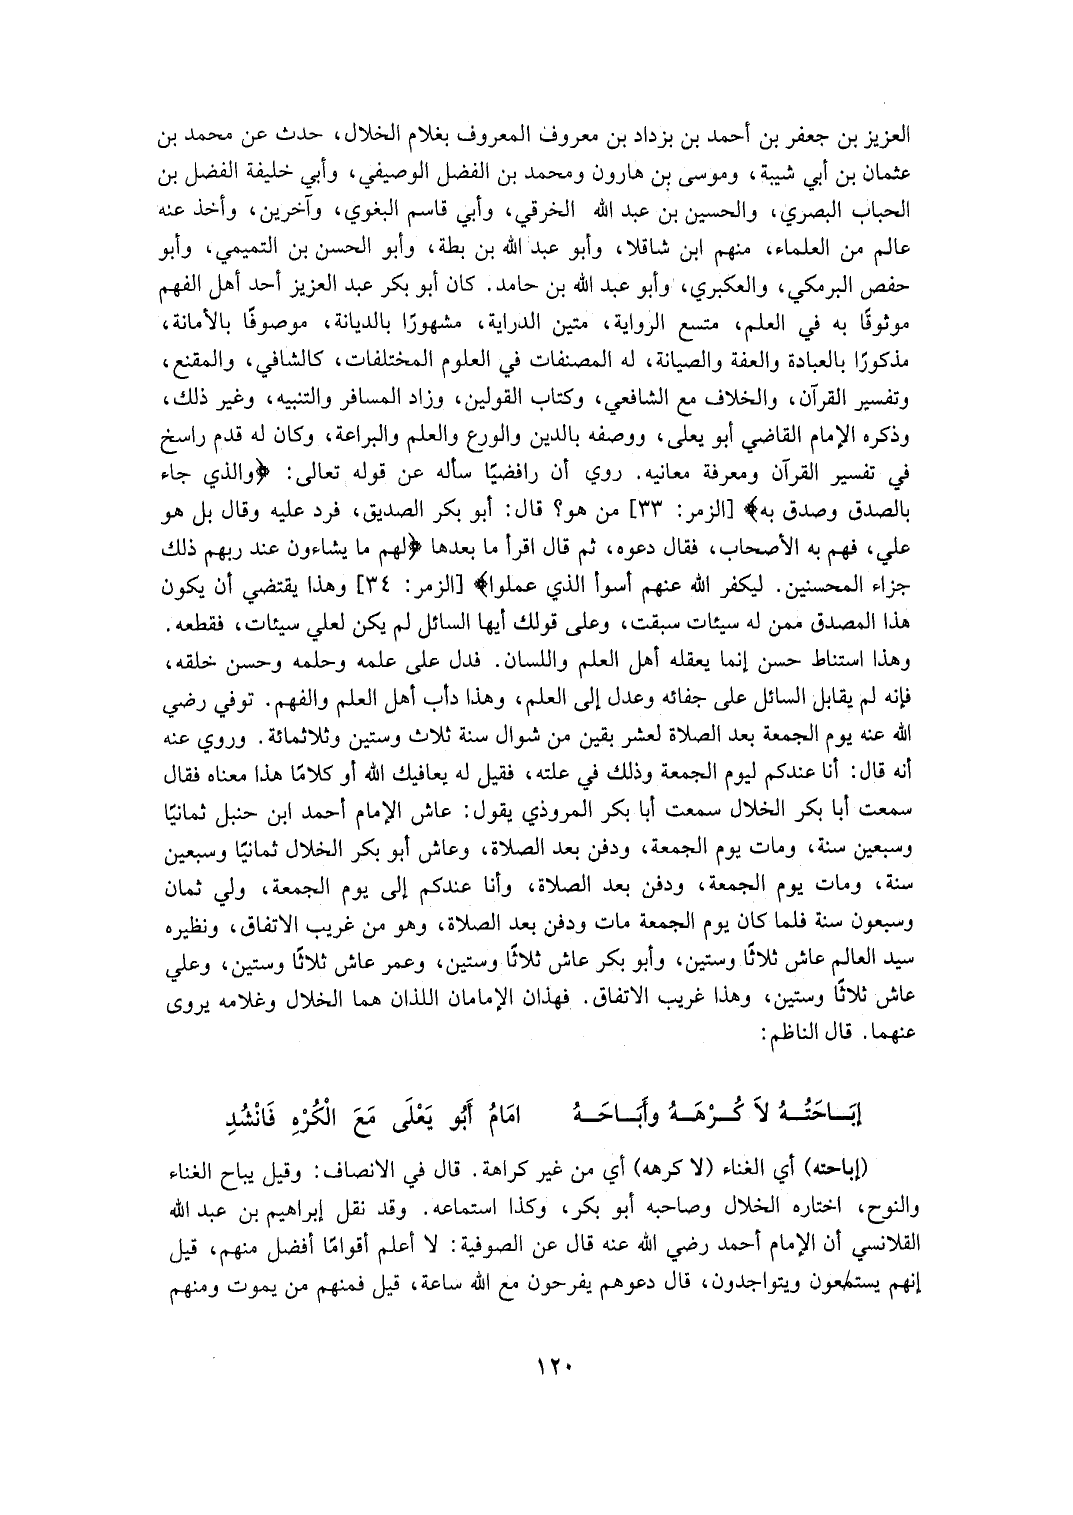 العزيز بن جعفر بن أحمد بن بزداد بن معروف المعروف بغلام الخلال، حدث عن محمد بن
عثمان بن أبي شيبة، وموسى بن هارون ومحمد بن الفضل الوصيفي، وأبي خليفة الفضل بن
الحباب البصري، والحسين بن عبد الله الخرقي، وأبي قاسم البغوي، وآخرين، وأخذ عنه
عالم من العلماء، منهم ابن شاقلا، وأبو عبد الله بن بطة، وأبو الحسن بن التميمي، وأبو
حفص البرمكي، والعكبري، وأبو عبد الله بن حامد. كان أبو بكر عبد العزيز أحد أهل الفهم
موثوقًا به في العلم، متسع الرواية، متين الدراية، مشهورًا بالديانة، موصوفًا بالأمانة،
مذكورًا بالعبادة والعفة والصيانة، له المصنفات في العلوم المختلفات، كالشافي، والمقنع،
وتفسير القرآن، والخلاف مع الشافعي، وكتاب القولين، وزاد المسافر والتنبيه، وغير ذلك،
وذكره الإمام القاضي أبو يعلى، ووصفه بالدين والورع والعلم والبراعة، وكان له قدم راسخ
في تفسير القرآن ومعرفة معانيه. روي أن رافضيًا سأله عن قوله تعالى: ﴿والذي جاء
بالصدق وصدق به﴾ [الزمر: ٣٣] من هو؟ قال: أبو بكر الصديق، فرد عليه وقال بل هو
علي، فهم به الأصحاب، فقال دعوه، ثم قال اقرأ ما بعدها ﴿لهم ما يشاءون عند ربهم ذلك
جزاء المحسنين. ليكفر الله عنهم أسوأ الذي عملوا﴾ [الزمر: ٣٤] وهذا يقتضي أن يكون
هذا المصدق ممن له سيئات سبقت، وعلى قولك أيها السائل لم يكن لعلي سيئات، فقطعه.
وهذا استناط حسن إنما يعقله أهل العلم واللسان. فدل على علمه وحلمه وحسن خلقه،
فإنه لم يقابل السائل على جفائه وعدل إلى العلم، وهذا دأب أهل العلم والفهم. توفي رضي
الله عنه يوم الجمعة بعد الصلاة لعشر بقين من شوال سنة ثلاث وستين وثلاثمائة. وروي عنه
أنه قال: أنا عندكم ليوم الجمعة وذلك في علته، فقيل له يعافيك الله أو كلامًا هذا معناه فقال
سمعت أبا بكر الخلال سمعت أبا بكر المروذي يقول: عاش الإمام أحمد ابن حنبل ثمانيًا
وسبعين سنة، ومات يوم الجمعة، ودفن بعد الصلاة، وعاش أبو بكر الخلال ثمانيًا وسبعين
سنة، ومات يوم الجمعة، ودفن بعد الصلاة، وأنا عندكم إلى يوم الجمعة، ولي ثمان
وسبعون سنة فلما كان يوم الجمعة مات ودفن بعد الصلاة، وهو من غريب الاتفاق، ونظيره
سيد العالم عاش ثلاثًا وستين، وأبو بكر عاش ثلاثًا وستين، وعمر عاش ثلاثًا وستين، وعلي
عاش ثلاثًا وستين، وهذا غريب الاتفاق. فهذان الإمامان اللذان هما الخلال وغلامه يروى
عنهما. قال الناظم:
إبَـاحَتُـهُ لاَ كُـرْهَـهُ وأَبَـاحَـهُ امَامُ أَبُو يَعْلَى مَعَ الْكُرْهِ فَانْشُدِ
(إباحته) أي الغناء (لا كرهه) أي من غير كراهة. قال في الانصاف: وقيل يباح الغناء
والنوح، اختاره الخلال وصاحبه أبو بكر، وكذا استماعه. وقد نقل إبراهيم بن عبد الله
القلانسي أن الإمام أحمد رضي الله عنه قال عن الصوفية: لا أعلم أقوامًا أفضل منهم، قيل
إنهم يستمعون ويتواجدون، قال دعوهم يفرحون مع الله ساعة، قيل فمنهم من يموت ومنهم
١٢٠